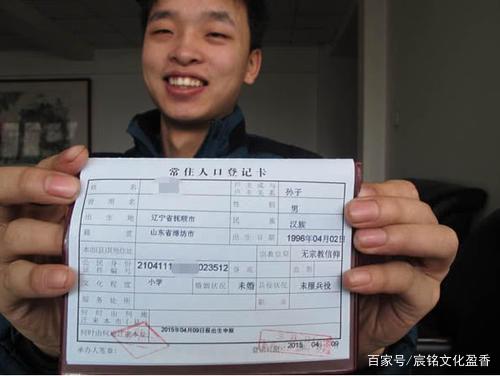 常住人口登记卡
姓 名 户主或与户主关系 孙子
曾用名 性别 男
出生地 辽宁省抚顺市 民族 汉族
籍贯 山东省潍坊市 出生日期 1996年04月02日
本市(县)其他住址 宗教信仰 无宗教信仰
公民身份证件编号 2104111 023512 身高 血型
文化程度 小学 婚姻状况 未婚 兵役状况 未服兵役
服务处所 职业
何时由何地迁来本市(县)
何时由何地迁来本址 2015年04月09日报出生申报
承办人签章 登记日期 2015 04 09
百家号/宸铭文化盈香